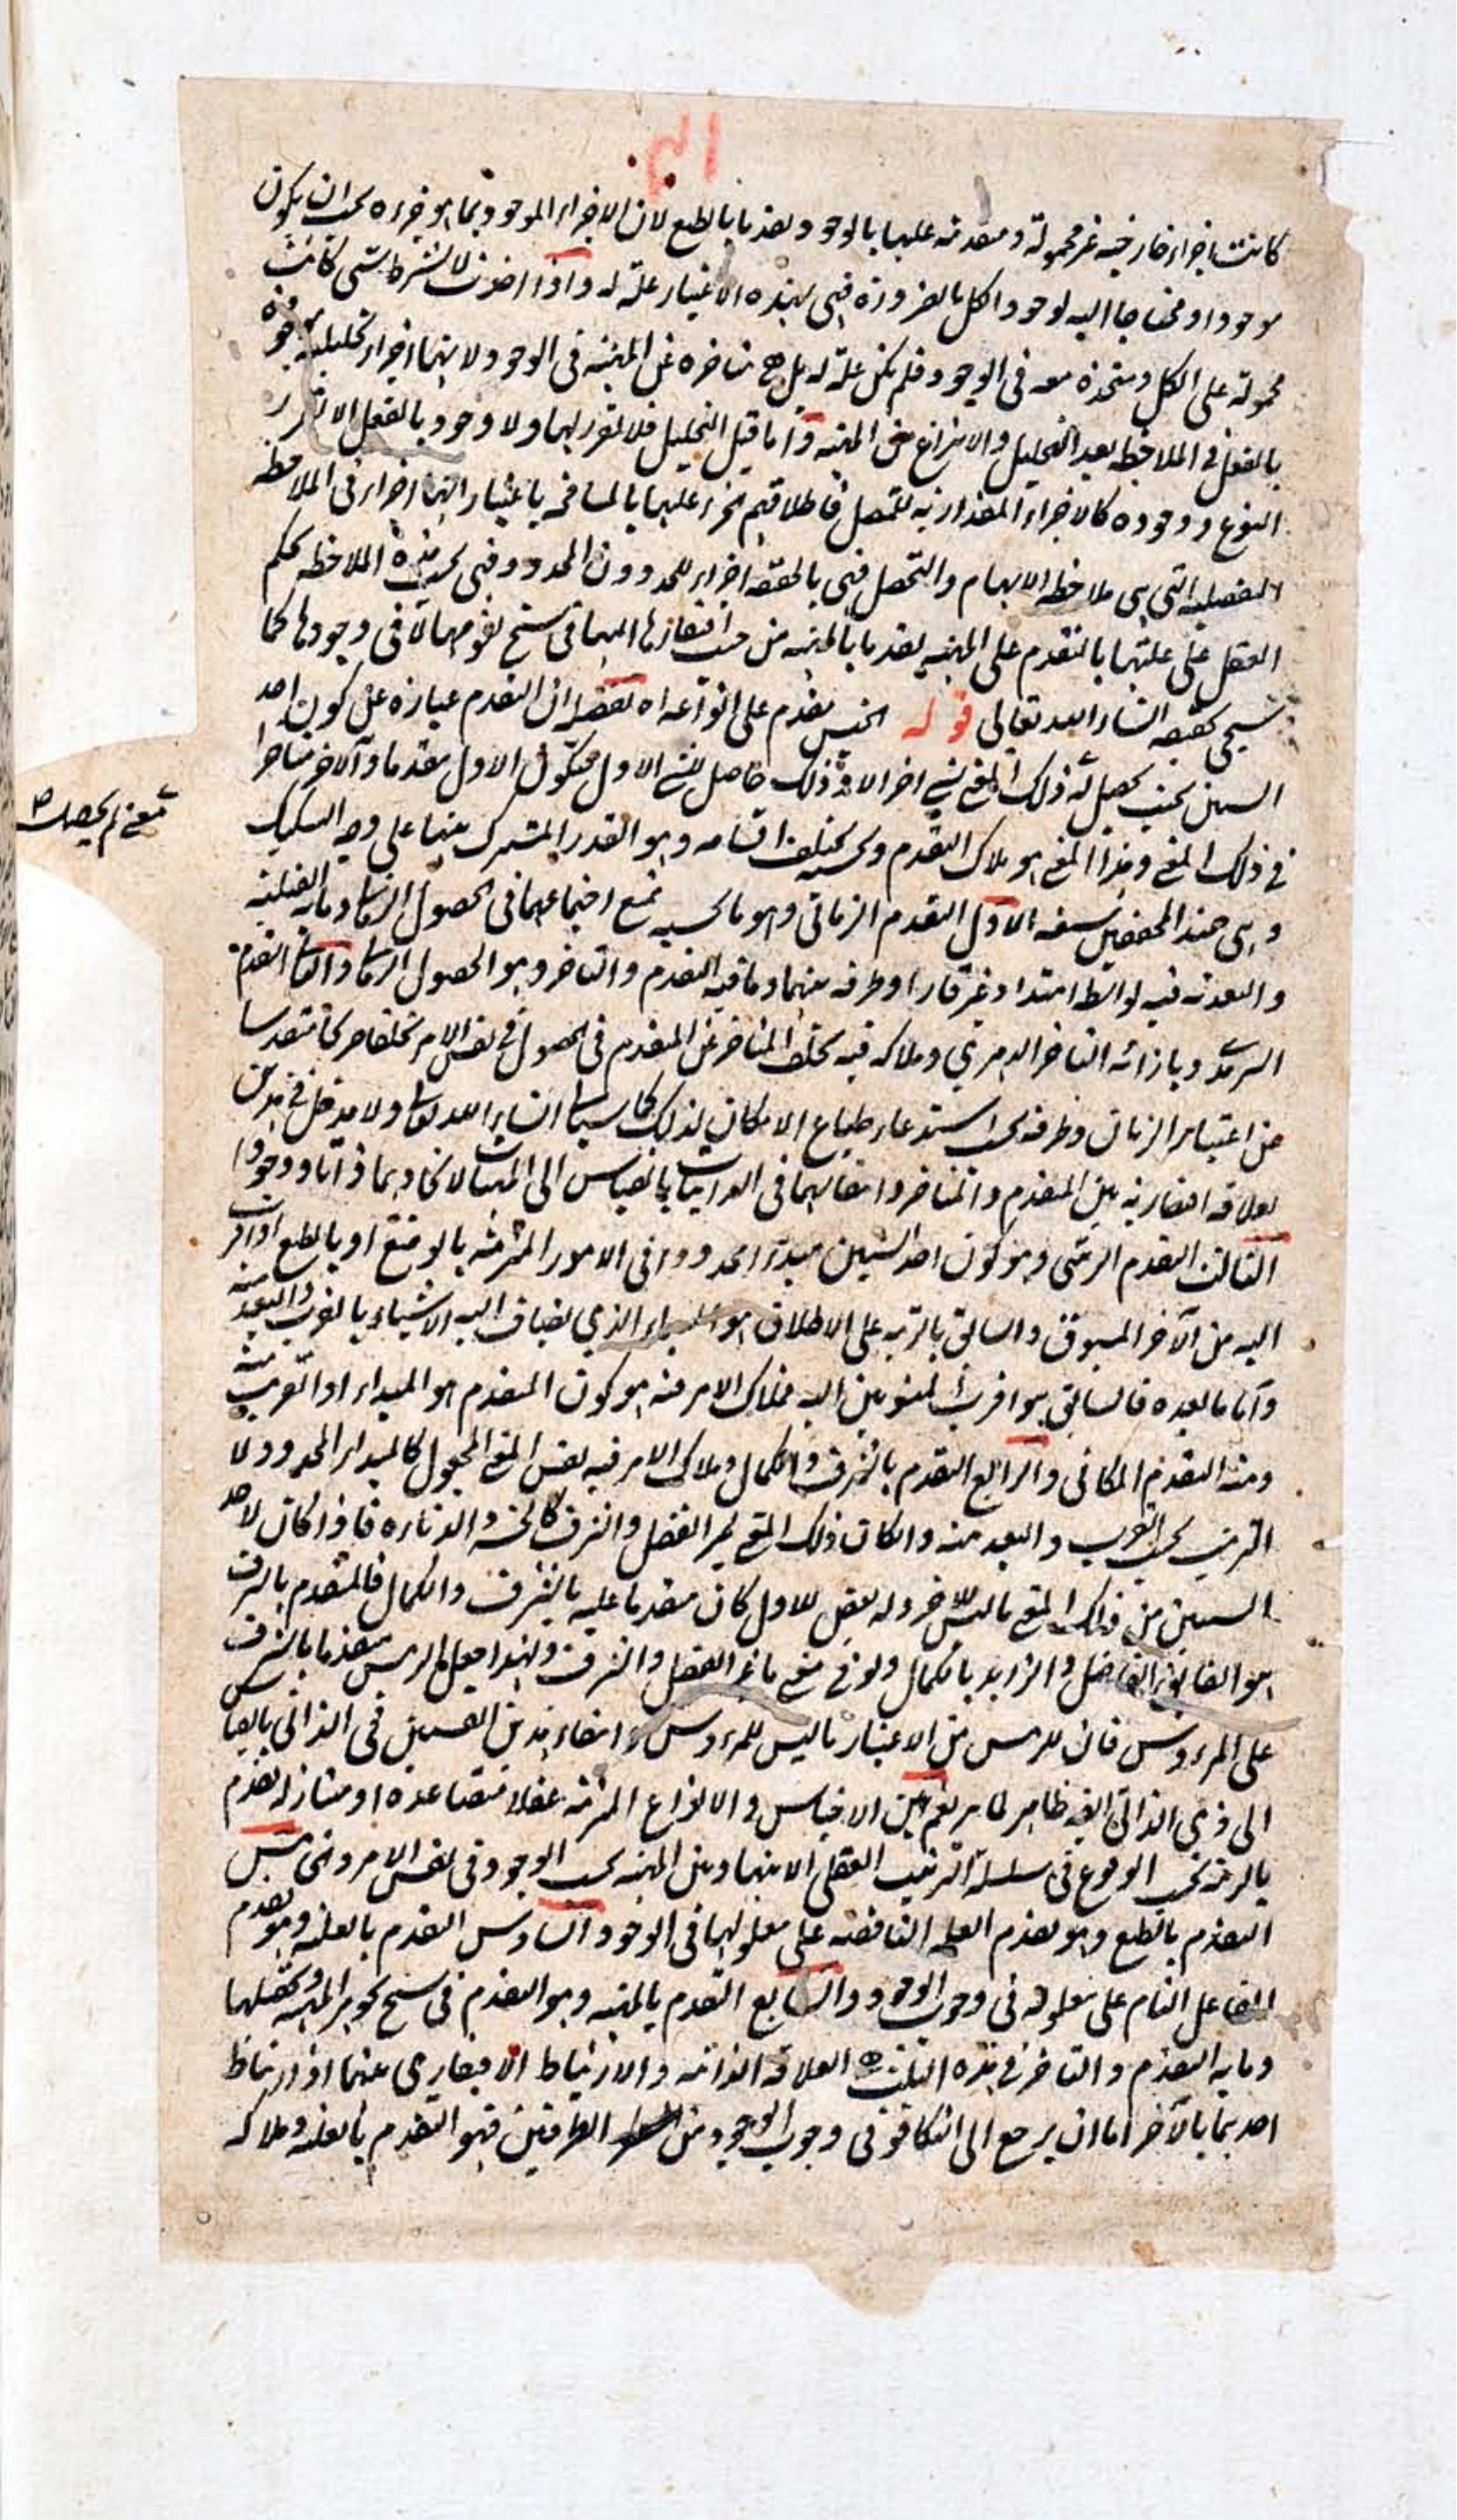 كانت اجزاء خارجية غير محمولة ومتقدمة عليها بالوجود تقدما بالطبع لان الاجزاء الموجود بما هو جزءه يجب ان يكون
موجودا ومحتاجا اليه لوجود الكل بالضرورة فهي بهذه الاعتبار علة له واذا اخذت لا بشرط شي كانت
محمولة على الكل ومتحدة معه في الوجود فلم تكن علة له بل هي متاخرة عن المهية في الوجود ولا بنها اجزاء تحليلية موجودة
بالفعل في الملاحظة بعد التحليل والانتزاع عن المهية واما قبل التحليل فلا تقرر لهما ولا وجود بالفعل الا تقرر
النوع ووجوده كالاجزاء المقدارية للمتصل فاطلاقهم الجزء عليها بالمسامحة باعتبار انهما اجزاء في الملاحظة
التفصيلية التي هي ملاحظة الابهام والتحصل فهي بالحقيقة اجزاء للحد دون المحدود فهي بحسب هذه الملاحظة يحكم
العقل على عليتها بالتقدم على المهية تقدما بالمهية من حيث افتقارها اليهما في سنخ تقومها لا في وجودها كما
سيجي تحقيقه انشاء الله تعالى قوله الجنس يتقدم على انواعه اه تفصيله ان التقدم عبارة عن كون احد
الشيئين بحيث يحصل له ذلك المعنى لشي اخر الا وذلك حاصل للشي الاول فيكون الاول متقدما والآخر متاخرا
معنى لم يحصل صح
في ذلك المعنى وهذا المعنى هو ملاك التقدم وبحسبه يختلف اقسامه وهو القدر المشترك بينها على وجه التشكيك
وهي عند المحققين سبعة الاول التقدم الزماني وهو ما بحسبه يمتنع اجتماعهما في الحصول الزماني وما به القبلية
والبعدية فيه بواسطة امتداد غير قار او طرفه بينهما وما فيه التقدم والتاخر وهو الحصول الزماني والثاني التقدم
السرمدي وبازائه التاخر الدهري وملاكه فيه تخلف المتاخر عن المتقدم في الحصول في نفس الامر تخلفا صريحا متقدسا
عن اعتبار الزمان وطرفه بحسب استدعاء طباع الامكان لذلك كما سيأتي انشاء الله تعالى ولا مدخل في هذين
لعلاقة افتقارية بين المتقدم والمتاخر وانتفائهما في الذاتيات بالقياس الى المهيات لاتحادهما ذاتا ووجودا
الثالث التقدم الرتبي وهو كون احد الشيئين مبدءا محدودا في الامور المترتبة بالوضع او بالطبع او اقرب
اليه من الآخر المسبوق والسابق بالرتبة على الاطلاق هو المبداء الذي يضاف اليه الاشياء بالقرب والبعد منه
واما ما بعده فالسابق هو اقرب المنسوبين اليه فملاك الامر فيه هو كون المتقدم هو المبداء او القريب منه
ومنه التقدم المكاني والرابع التقدم بالشرف والكمال وملاك الامر فيه نفس المعنى المجعول كالمبداء المحدود لا
الترتيب بحسب القرب والبعد منه وان كان ذلك المعنى غير الفضل والشرف كالخسة والدناءة فاذا كان لاحد
الشيئين من ذلك المعنى ما ليس للاخر وله بعض للاول كان متقدما عليه بالشرف والكمال فالمتقدم بالشرف
هو الفائق الفاضل والزايد بالكمال ولو في معنى ما غير الفضل والشرف ولهذا جعل الرئيس متقدما بالشرف
على المرءوس فان للرئيس من الاعتبار ما ليس للمرءوس وانتفاء هذين القسمين في الذاتي بالقياس
الى ذي الذاتي ايضا ظاهر لما بر نعم بين الاجناس والانواع المترتبة عقلا متصاعدة او متنازلة تقدم
بالرتبة بحسب الوقوع في سلسلة الترتيب العقلي لا بينهما وبين المهية بحسب الوجود في نفس الامر والخامس
التقدم بالطبع وهو تقدم العلة الناقصة على معلولها في الوجود والسادس التقدم بالعلية وهو تقدم
الفاعل التام على معلوله في وجوب الوجود والسابع التقدم بالمهية وهو التقدم في سنخ جوهر المهية وتحصلها
وما به التقدم والتاخر في هذه الثلثة العلاقة الذاتية والارتباط الافتقاري بينهما اذ ارتباط
احدهما بالآخر اما ان يرجع الى التكافو في وجوب الوجود من الطرفين فهو التقدم بالعلية وملاكه